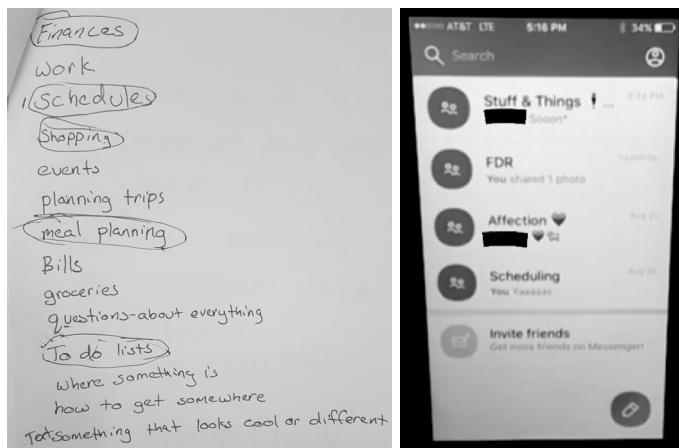 Finances
work
Schedules
Shopping
events
planning trips
meal planning
Bills
groceries
questions-about everything
To do lists
where something is
how to get somewhere
something that looks cool or different
AT&T LTE 5:16 PM 34%
Search
Stuff & Things ...
Sooon*
FDR Yesterday
You shared 1 photo
Affection
Scheduling Aug 26
You Yaaaaas
Invite friends
Get more friends on Messenger!